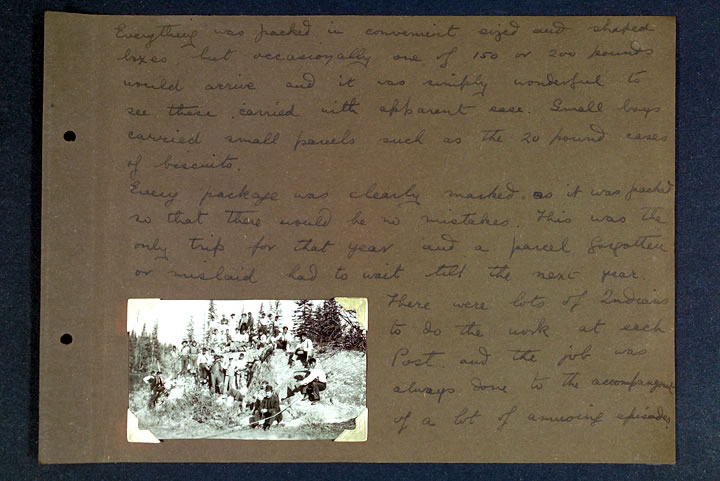 Everything was packed in convenient sized and shaped
boxes but occasionally one of 150 or 200 pounds
would arrive and it was simply wonderful to
see these carried with apparent ease. Small boys
carried small parcels such as the 20 pound cases
of biscuits.
Every package was clearly marked as it was packed
so that there would be no mistakes. This was the
only trip for that year and a parcel forgotten
or mislaid had to wait till the next year.
There were lots of Indians
to do the work at each
Post and the job was
always done to the accompanyment
of a lot of amusing episodes